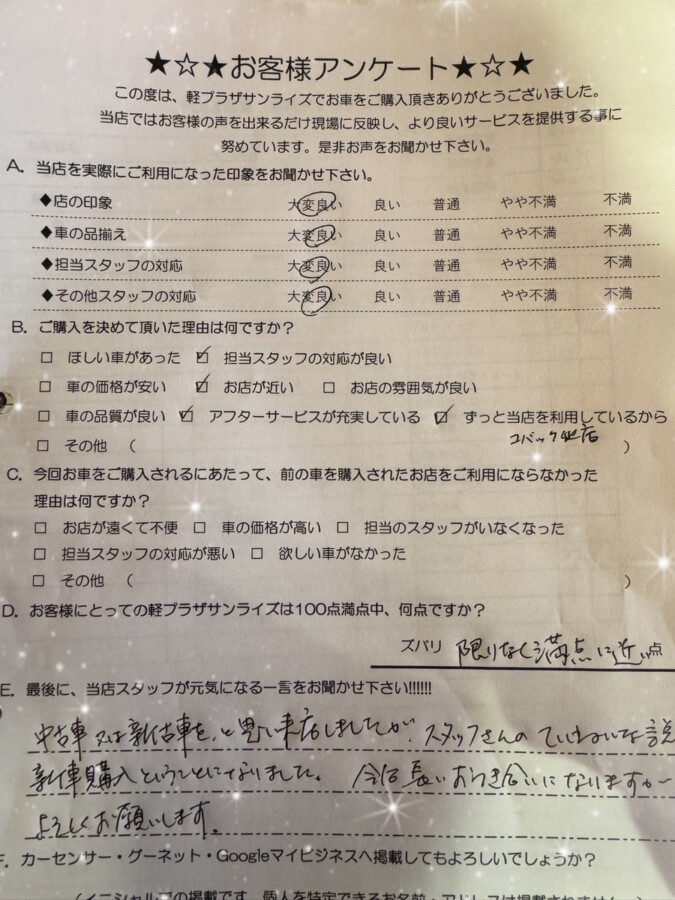 ★☆★お客様アンケート★☆★
この度は、軽プラザサンライズでお車をご購入頂きありがとうございました。
当店ではお客様の声を出来るだけ現場に反映し、より良いサービスを提供する事に
努めています。是非お声をお聞かせ下さい。
A. 当店を実際にご利用になった印象をお聞かせ下さい。
◆店の印象 大変良い 良い 普通 やや不満 不満
◆車の品揃え 大変良い 良い 普通 やや不満 不満
◆担当スタッフの対応 大変良い 良い 普通 やや不満 不満
◆その他スタッフの対応 大変良い 良い 普通 やや不満 不満
B. ご購入を決めて頂いた理由は何ですか？
□ ほしい車があった ☑ 担当スタッフの対応が良い
□ 車の価格が安い ☑ お店が近い □ お店の雰囲気が良い
□ 車の品質が良い ☑ アフターサービスが充実している ☑ ずっと当店を利用しているから
コバック
□ その他 （ ）
C. 今回お車をご購入されるにあたって、前の車を購入されたお店をご利用にならなかった
理由は何ですか？
□ お店が遠くて不便 □ 車の価格が高い □ 担当のスタッフがいなくなった
□ 担当スタッフの対応が悪い □ 欲しい車がなかった
□ その他 （ ）
D. お客様にとっての軽プラザサンライズは100点満点中、何点ですか？
ズバリ 限りなく満点に近い点
E. 最後に、当店スタッフが元気になる一言をお聞かせ下さい!!!!!!
中古車又は新古車を、と思い来店しましたが、スタッフさんのていねいな説
新車購入ということになりました。 今後長いおつき合いになりますが
よろしくお願いします。
F. カーセンサー・グーネット・Googleマイビジネスへ掲載してもよろしいでしょうか？
（イニシャルでの掲載です。個人を特定できるお名前・アドレスは掲載されません。）